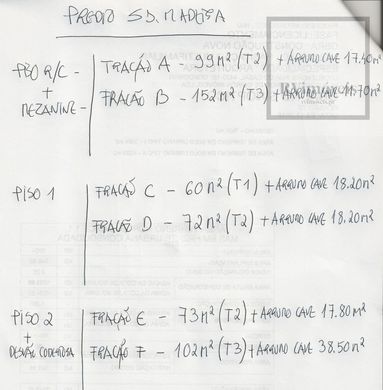 PRÉDIO S.J. MADEIRA
PISO R/C - FRAÇÃO A - 99m² (T2) + ARRUMO CAVE 17.40m²
+
MEZANINE - FRAÇÃO B - 152m² (T3) + ARRUMO CAVE 11.70m²
PISO 1 FRAÇÃO C - 60m² (T1) + ARRUMO CAVE 18.20m²
FRAÇÃO D - 72m² (T2) + ARRUMO CAVE 18.20m²
PISO 2 FRAÇÃO E - 73m² (T2) + ARRUMO CAVE 17.80m²
+
DESVÃO FRAÇÃO F - 102m² (T3) + ARRUMO CAVE 38.50m²